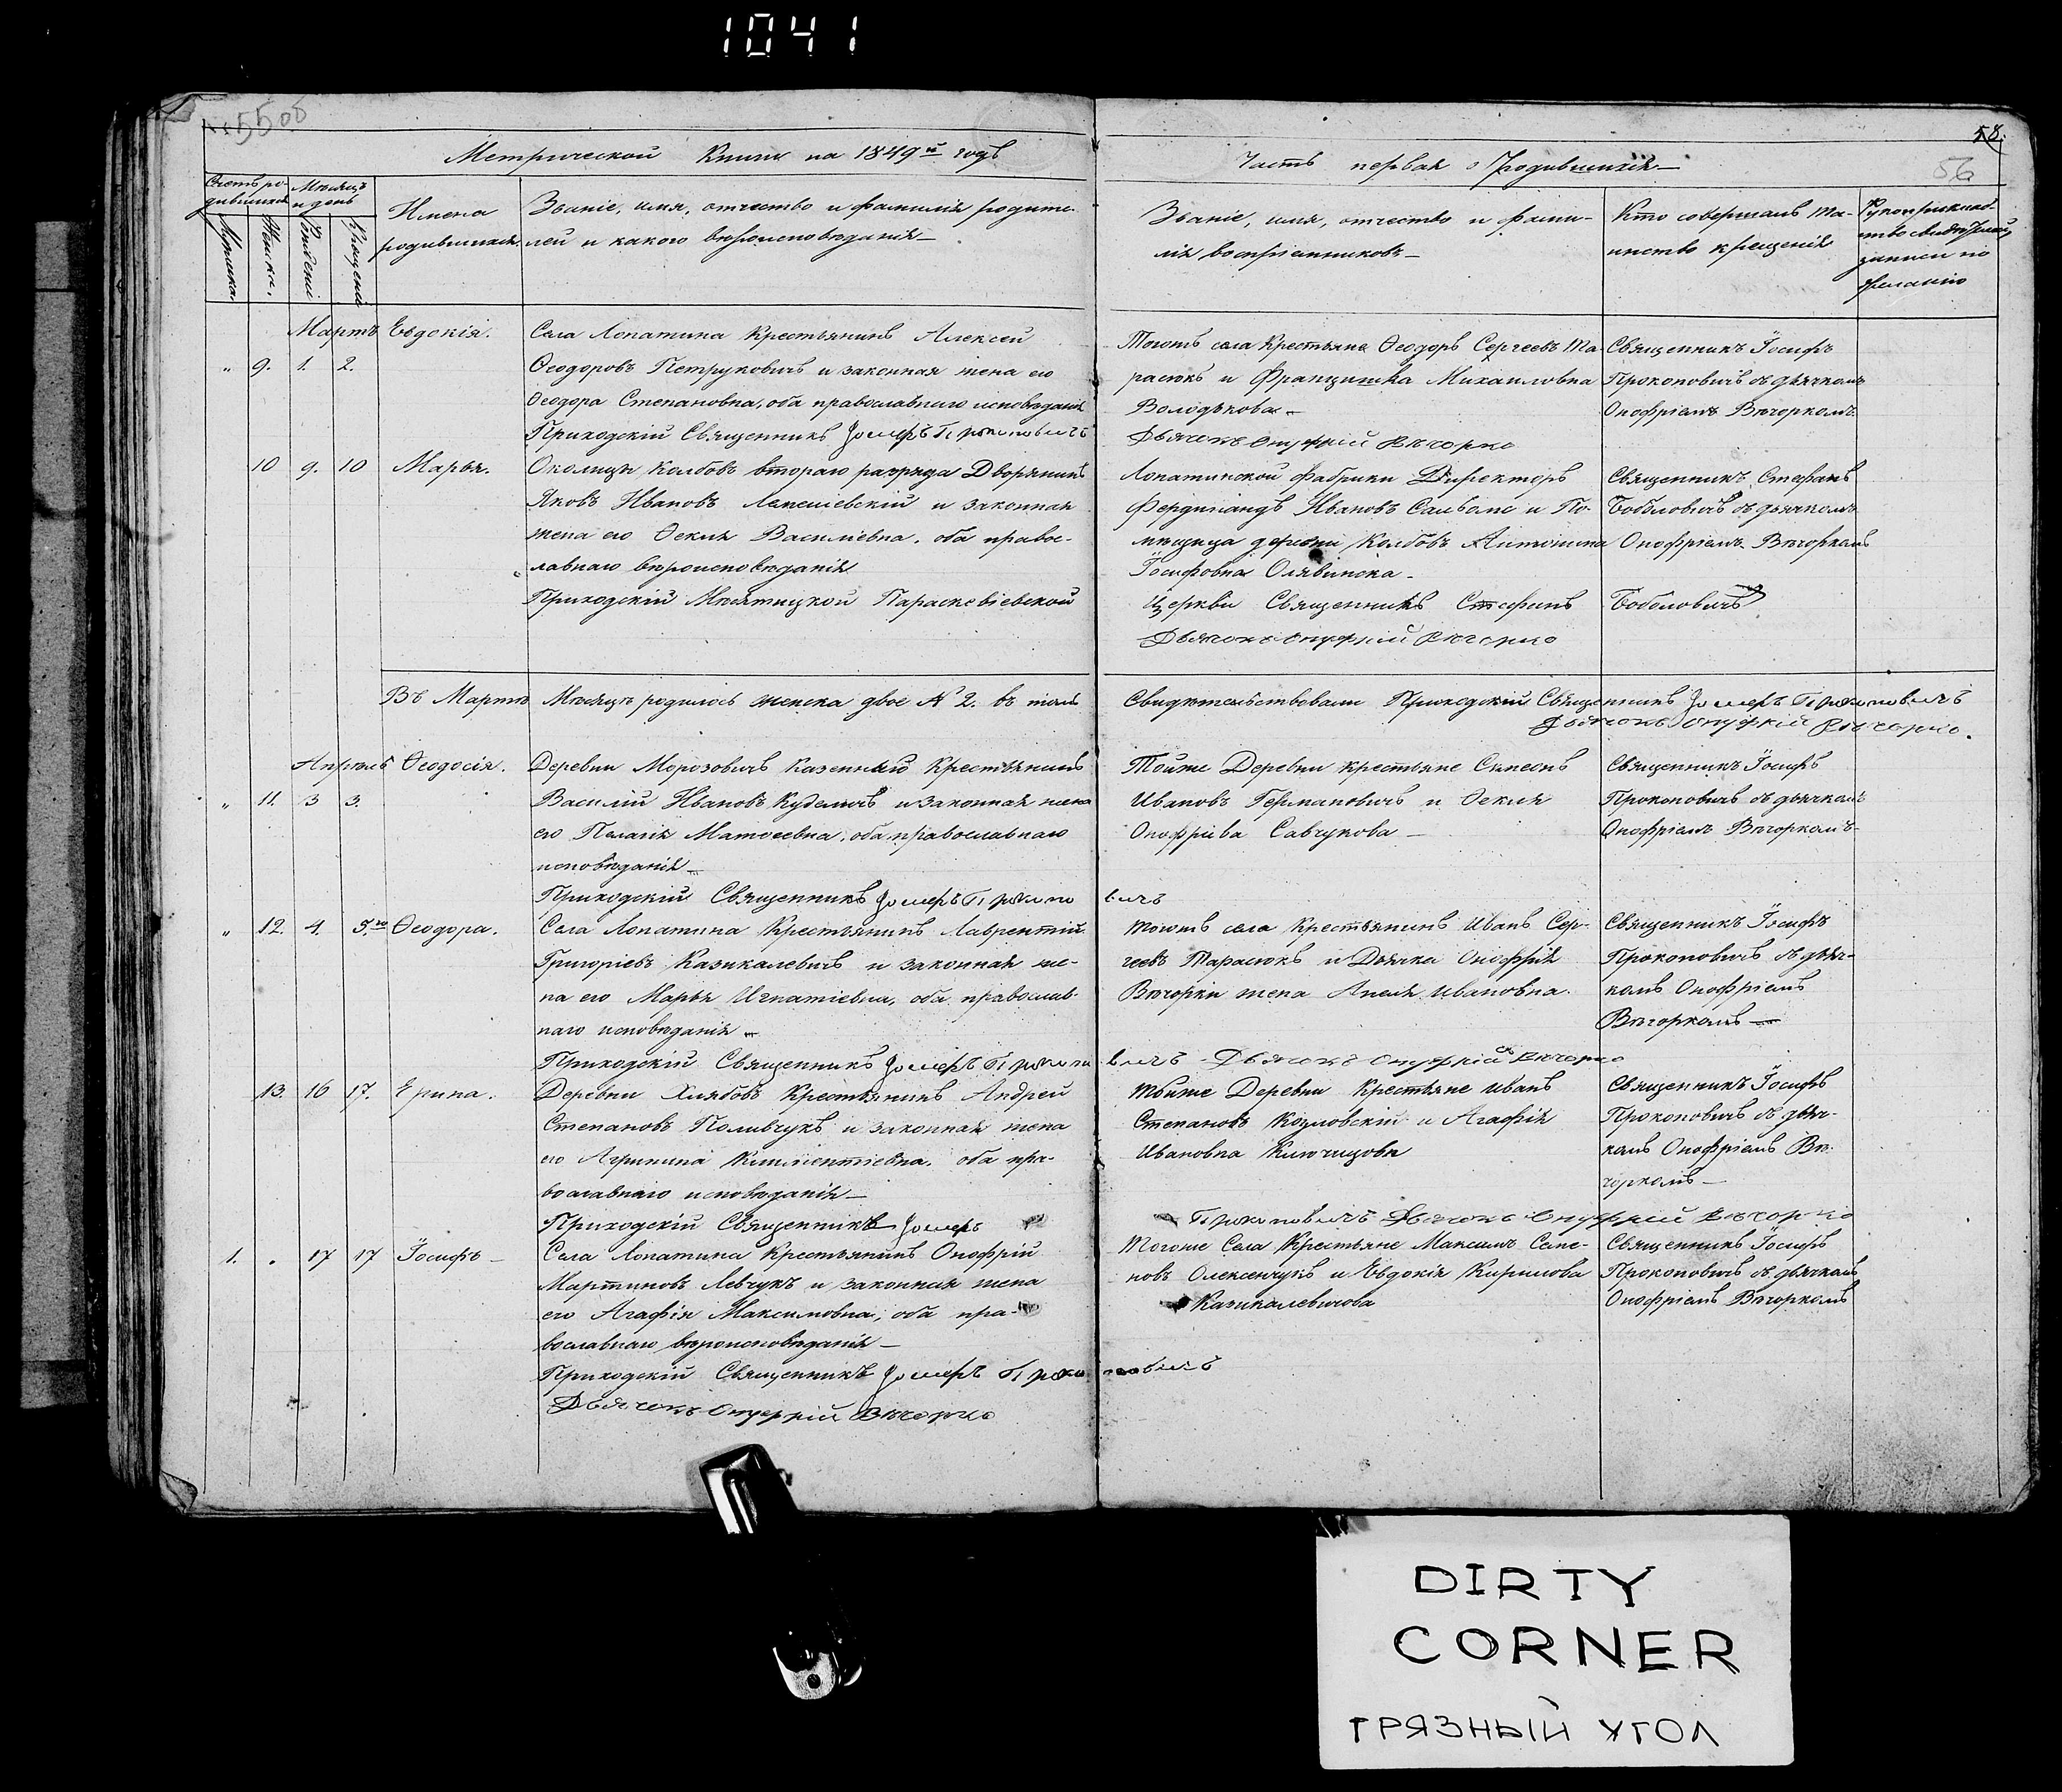 1041
58.
56
Метрической Книги на 1849й годъ
Часть первая о Родившихся
Счетъ ро-
дившихся
Мѣсяцъ
и день
Мужска.
Женска.
Рожденія
Крещенія
Имена
родившихся
Званіе, имя, отчество и фамилія родите-
лей и какого вѣроисповѣданія
Званіе, имя, отчество и фами-
лія воспріемниковъ
Кто совершалъ та-
инство крещенія
Рукоприклад-
ство свидѣтелей
записи по
желанію
Мартъ Евдокія.
" 9. 1. 2.
Села Лопатина Крестьянинъ Алексей
Ѳеодоровъ Петруковичъ и законная жена его
Ѳеодора Степановна, оба православнаго исповѣданія
Приходскій Священникъ Іосифъ Прокоповичъ
Тогожъ села Крестьяне Ѳеодоръ Сергеевъ Та-
расюкъ и Францишка Михаиловна
Володькова
Дьячокъ Онуфрій Вѣчорко
Священникъ Іосифъ
Прокоповичъ съ дьячкомъ
Онофріемъ Вѣчоркомъ
10 9. 10 Марья.
Околицы Колбовъ втораго разряда Дворянинъ
Яковъ Ивановъ Лемешевскій и законная
жена его Ѳекла Василіевна, оба право-
славнаго вѣроисповѣданія
Приходскій Мѣстицкой Параскевіевской
Лопатинской фабрики Директоръ
Фердинандъ Ивановъ Сальваме и По-
мѣщица деревни Колбовъ Антонина
Іосифовна Олявинска
Церкви Священникъ Стефанъ Боболовичъ
Дьячокъ Онуфрій Вѣчорко
Священникъ Стефанъ
Боболовичъ съ дьячкомъ
Онофріемъ Вѣчоркомъ
Въ Мартѣ Мѣсяцѣ родилось женска двое № 2. въ томъ
Свидѣтельствовали Приходскій Священникъ Іосифъ Прокоповичъ
Дьячокъ Онуфрій Вѣчорко.
Апрель Ѳеодосія.
" 11. 3 3.
Деревни Морозовичъ казенный Крестьянинъ
Василій Ивановъ Куделичъ и законная жена
его Пелагія Матѳеевна, оба православнаго
исповѣданія
Приходскій Священникъ Іосифъ Прокопо вичъ
Тойже Деревни крестьяне Симеонъ
Ивановъ Германовичъ и Ѳекла
Онофріева Савчукова
Священникъ Іосифъ
Прокоповичъ съ дьячкомъ
Онофріемъ Вѣчоркомъ
" 12. 4. 5.го Ѳеодора.
Села Лопатина Крестьянинъ Лаврентій
Григоріевъ Казикалевичъ и законная же-
на его Марья Игнатіевна, оба православ-
наго исповѣданія
Приходскій Священникъ Іосифъ Прокопо вичъ Дьячокъ Онуфрій Вѣчорко
Тогожъ села крестьянинъ Иванъ Сер-
геевъ Тарасюкъ и Дьячка Онофрія
Вѣчорки жена Анеля Ивановна
Священникъ Іосифъ
Прокоповичъ съ дьяч-
комъ Онофріемъ
Вѣчоркомъ
13. 16 17. Ерина.
Деревни Хлябовъ Крестьянинъ Андрей
Степановъ Поливчукъ и законная жена
его Агрипина Климентіевна, оба пра-
вославнаго исповѣданія
Приходскій Священникъ Іосифъ Прокоповичъ Дьячокъ Онуфрій Вѣчорко
Тойже Деревни Крестьяне Иванъ
Степановъ Козловскій и Агафія
Ивановна Ключицова
Священникъ Іосифъ
Прокоповичъ съ дьяч-
комъ Онофріемъ Вѣ-
чоркомъ
1. . 17 17 Іосифъ
Села Лопатина Крестьянинъ Онофрій
Мартиновъ Левчукъ и законная жена
его Агафія Максимовна, оба пра-
вославнаго вѣроисповѣданія
Приходскій Священникъ Іосифъ Прокоповичъ
Дьячокъ Онуфрій Вѣчорко
Тогоже Села Крестьяне Максимъ Семе-
новъ Олексенчукъ и Евдокія Кирилова
Казикалевичова
Священникъ Іосифъ
Прокоповичъ съ дьячкомъ
Онофріемъ Вѣчоркомъ
DIRTY
CORNER
ГРЯЗНЫЙ УГОЛ